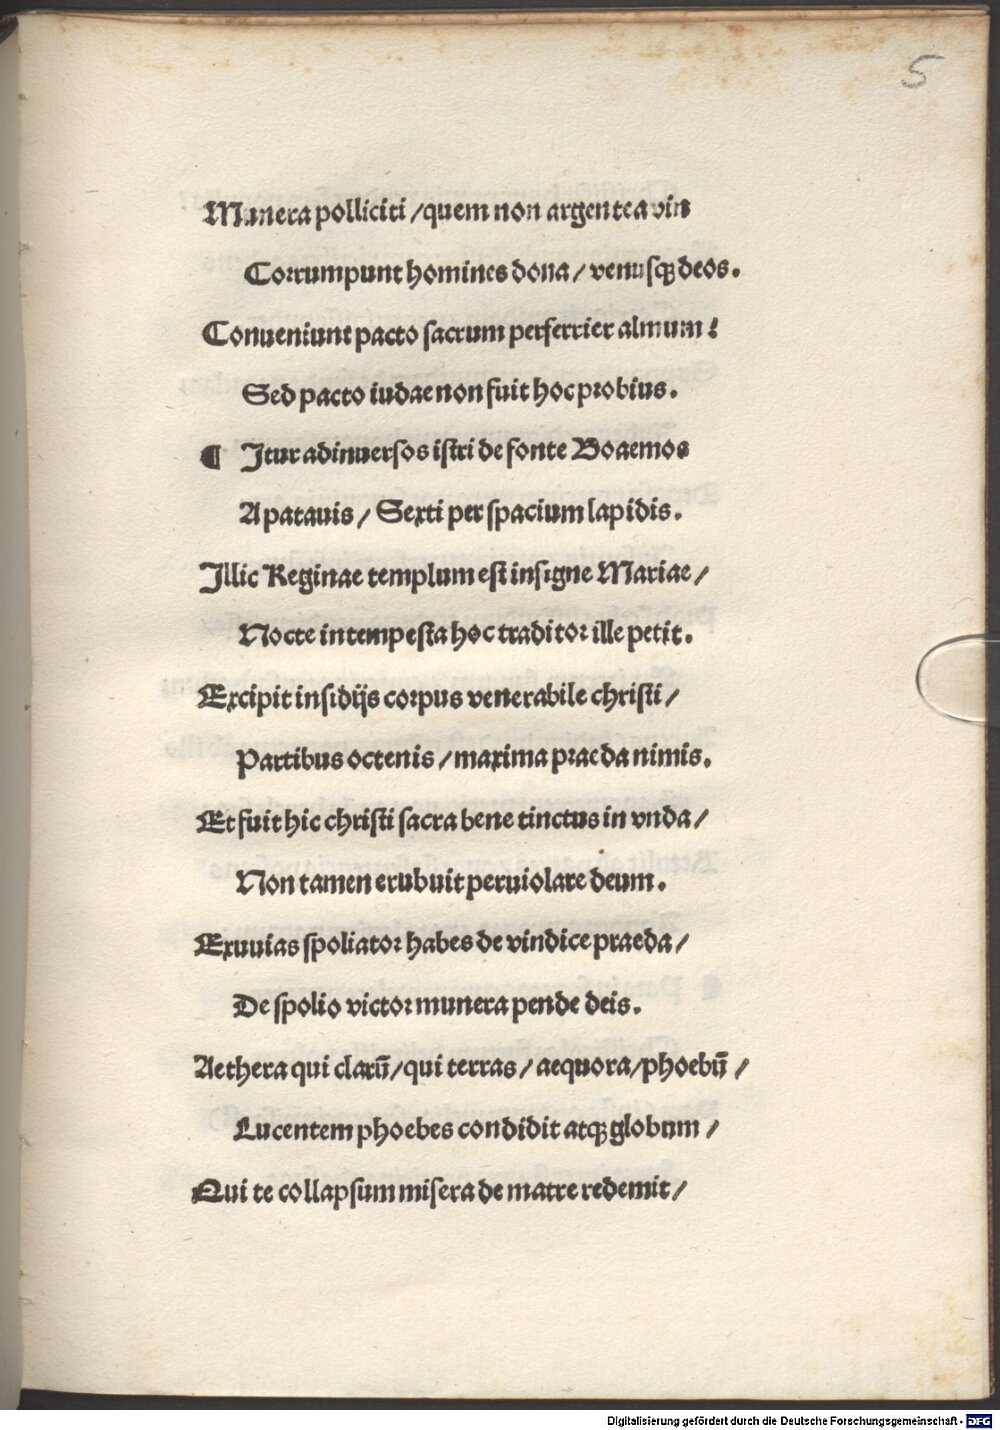 5
Munera polliciti /quem non argentea vin
Corrumpunt homines dona / venusqꝫ deos.
Conueniunt pacto sacrum perferrier almum:
Sed pacto iudae non fuit hoc probius.
¶ Itur ad inuersos istri de fonte Boaemos
A patauis / Sexti per spacium lapidis.
Illic Reginae templum est insigne Mariae /
Nocte intempesta hoc traditor ille petit.
Excipit insidijs corpus venerabile christi /
Partibus octenis / maxima praeda nimis.
Et fuit hic christi sacra bene tinctus in vnda /
Non tamen erubuit peruiolare deum.
Exuuias spoliator habes de vindice praeda /
De spolio victor munera pende deis.
Aethera qui clarū/qui terras / aequora/phoebū /
Lucentem phoebes condidit atqꝫ globum /
Qui te collapsum misera de matre redemit /
Digitalisierung gefördert durch die Deutsche Forschungsgemeinschaft - DFG